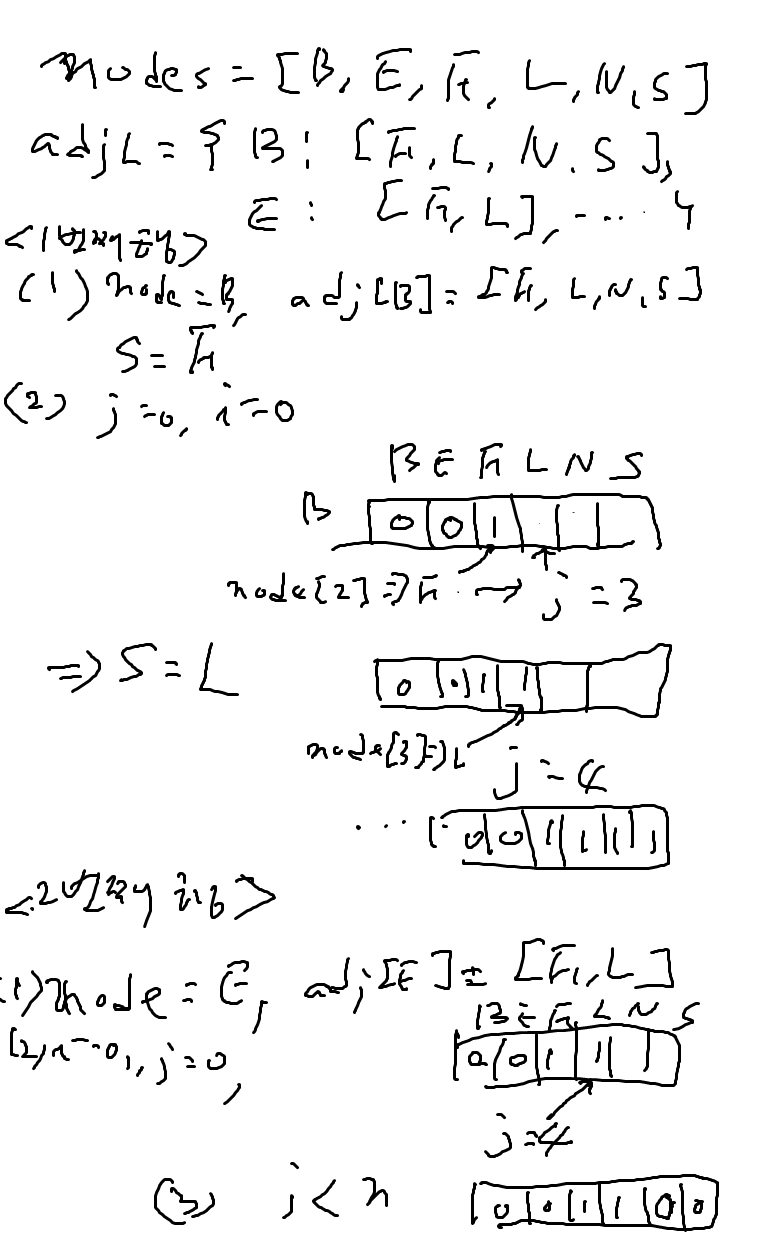 nodes = [B, E, H, L, N, S]
adjL = { B : [H, L, N, S],
E : [H, L], ... }
<1번째 줄>
(1) node = B, adj[B] = [H, L, N, S]
S = H
(2) j = 0, i = 0
B E H L N S
B 0 0 1
node[2] => H → j = 3
=> S = L
0 0 1 1
node[3] => L
j = 4
... 0 0 1 1 1 1
<2번째 줄>
(1) node = E, adj[E] = [H, L]
B E H L N S
(2) i = 0, j = 0,
0 0 1 1
j = 4
(3) j < n
0 0 1 1 0 0